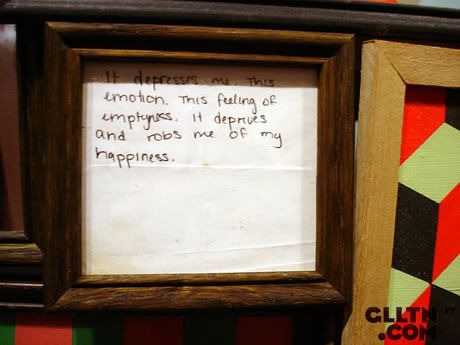 It depresses me. This
emotion. This feeling of
emptyness. It deprives
and robs me of my
happiness.
GLLTN
.COM